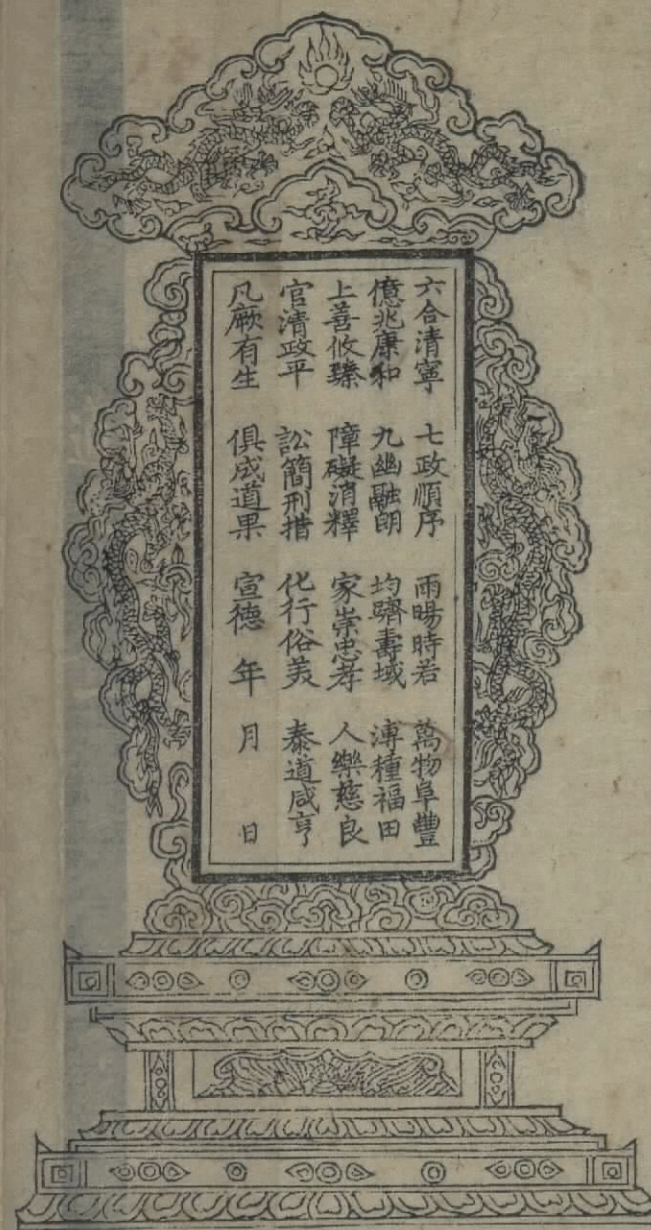 六合清寧 七政順序 雨暘時若 萬物阜豐
億兆康和 九幽融朗 均躋壽域 溥種福田
上善攸臻 障礙消釋 家崇忠孝 人樂慈良
官清政平 訟簡刑措 化行俗美 泰道咸亨
凡厥有生 俱成道果 宣德 年 月 日